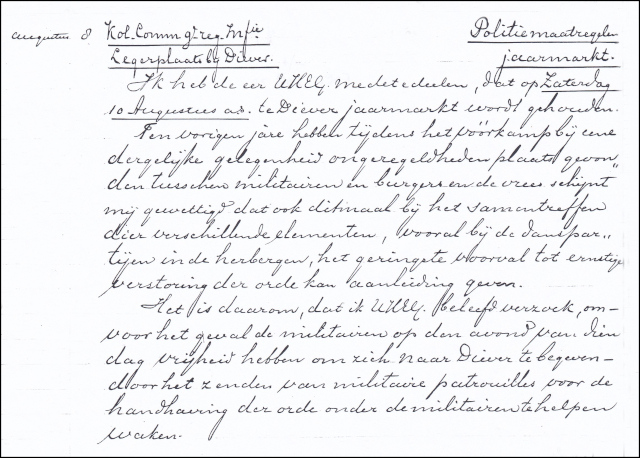 Augustus 8. Kol. Comm gt. reg. Infie Politiemaatregelen
Legerplaats bij Diever. jaarmarkt.
Ik heb de eer UHEG. mede te deelen, dat op Zaterdag
10 Augustus a.s. te Diever jaarmarkt wordt gehouden.
Ten vorigen jare hebben tijdens het vóórkamp bij eene
dergelijke gelegenheid ongeregeldheden plaats gevon„
den tusschen militairen en burgers en de vrees schijnt
mij gewettigd dat ook ditmaal bij het samentreffen
dier verschillende elementen, vooral bij de danspar„
tijen in de herbergen, het geringste voorval tot ernstige
verstoring der orde kan aanleiding geven.
Het is daarom, dat ik UHEG. beleefd verzoek, om-
voor het geval de militairen op den avond van dien
dag vrijheid hebben om zich naar Diever te begeven-
door het zenden van militaire patrouilles voor de
handhaving der orde onder de militairen te helpen
waken.